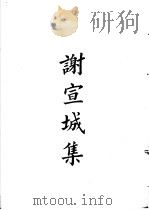 謝宣城集
mtoou.info
yunpan